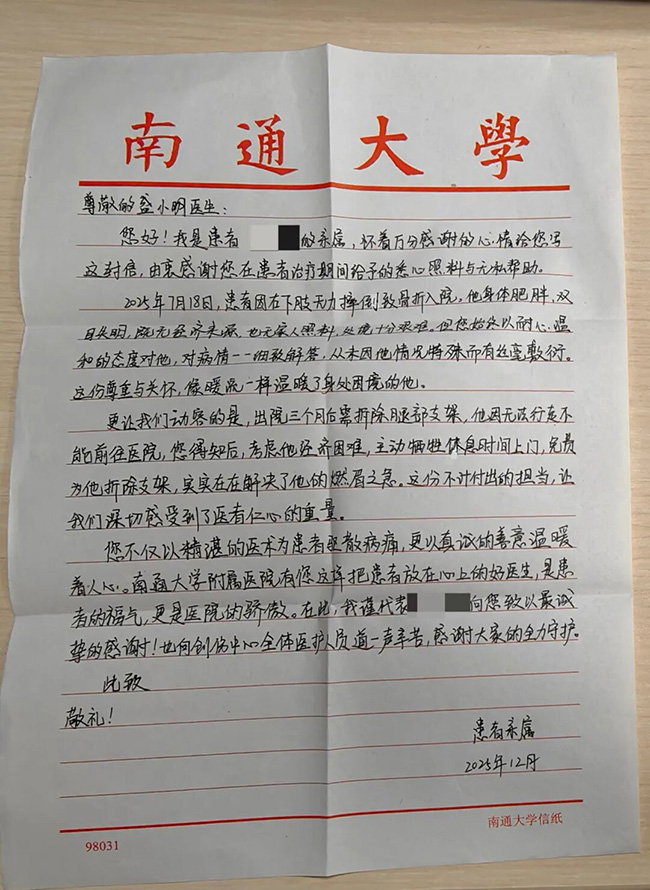 南通大學
尊敬的盛小明医生：
您好！我是患者 的亲属，怀着万分感谢的心情给您写
这封信，由衷感谢您在患者治疗期间给予的悉心照料与无私帮助。
2025年7月18日，患者因在下肢无力摔倒致骨折入院，他身体肥胖，双
目失明，既无经济来源，也无家人照料，处境十分艰难。但您始终以耐心、温
和的态度对他，对病情一一细致解答，从未因他情况特殊而有丝毫敷衍。
这份尊重与关怀，像暖流一样温暖了身处困境的他。
更让我们动容的是，出院三个月后需拆除腿部支架，他因无法行走不
能前往医院，您得知后，考虑他经济困难，主动牺牲休息时间上门，免费
为他拆除支架，实实在在解决了他的燃眉之急。这份不计付出的担当，让
我们深切感受到了医者仁心的重量。
您不仅以精湛的医术为患者驱散病痛，更以真诚的善意温暖
着人心。南通大学附属医院有您这样把患者放在心上的好医生，是患
者的福气，更是医院的骄傲。在此，我谨代表 向您致以最诚
挚的感谢！也向创伤中心全体医护人员道一声辛苦，感谢大家的全力守护。
此致
敬礼！
患者亲属
2025年12月
南通大学信纸
98031